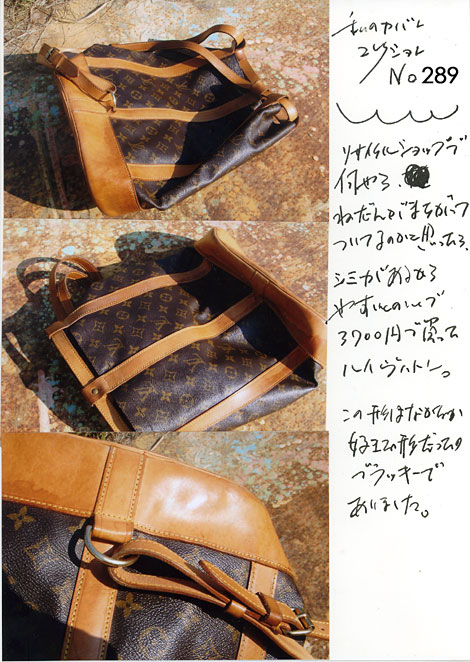 私のカバン
コレクション
No 289
リサイクルショップで
何やら、
ねだんがまちがって
ついてるのかと思ったら、
シミがあるから
やすいのよで
3700円で買った
ルイヴィトン。
この形はなかなか
好みの形だったの
でラッキーで
ありました。